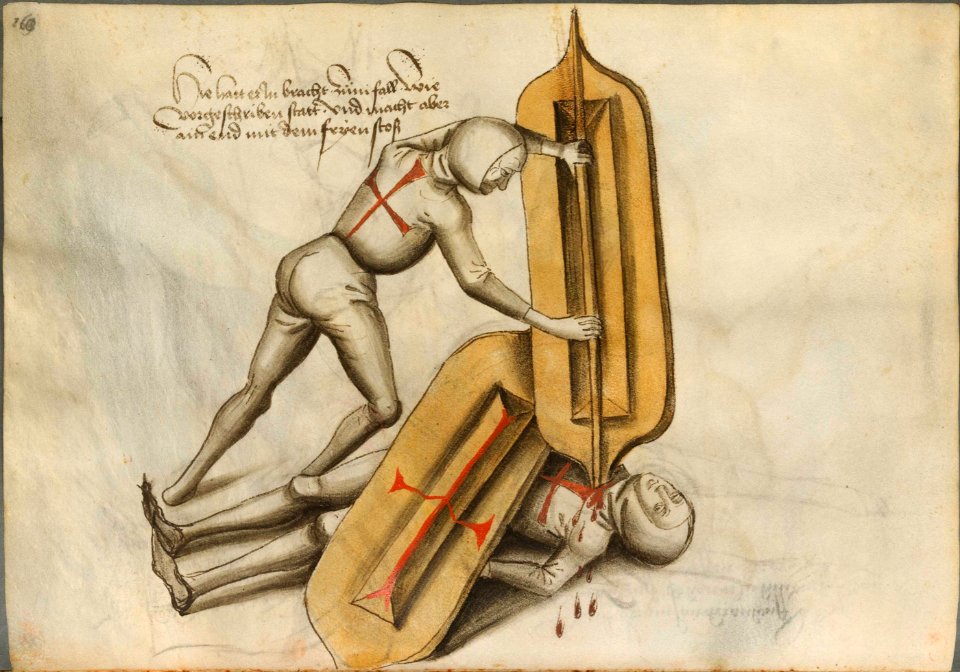 169
Hie hatt er In bracht züm fall wie
vorgeschriben statt vnd macht aber
ain end mit dem fryen stoß